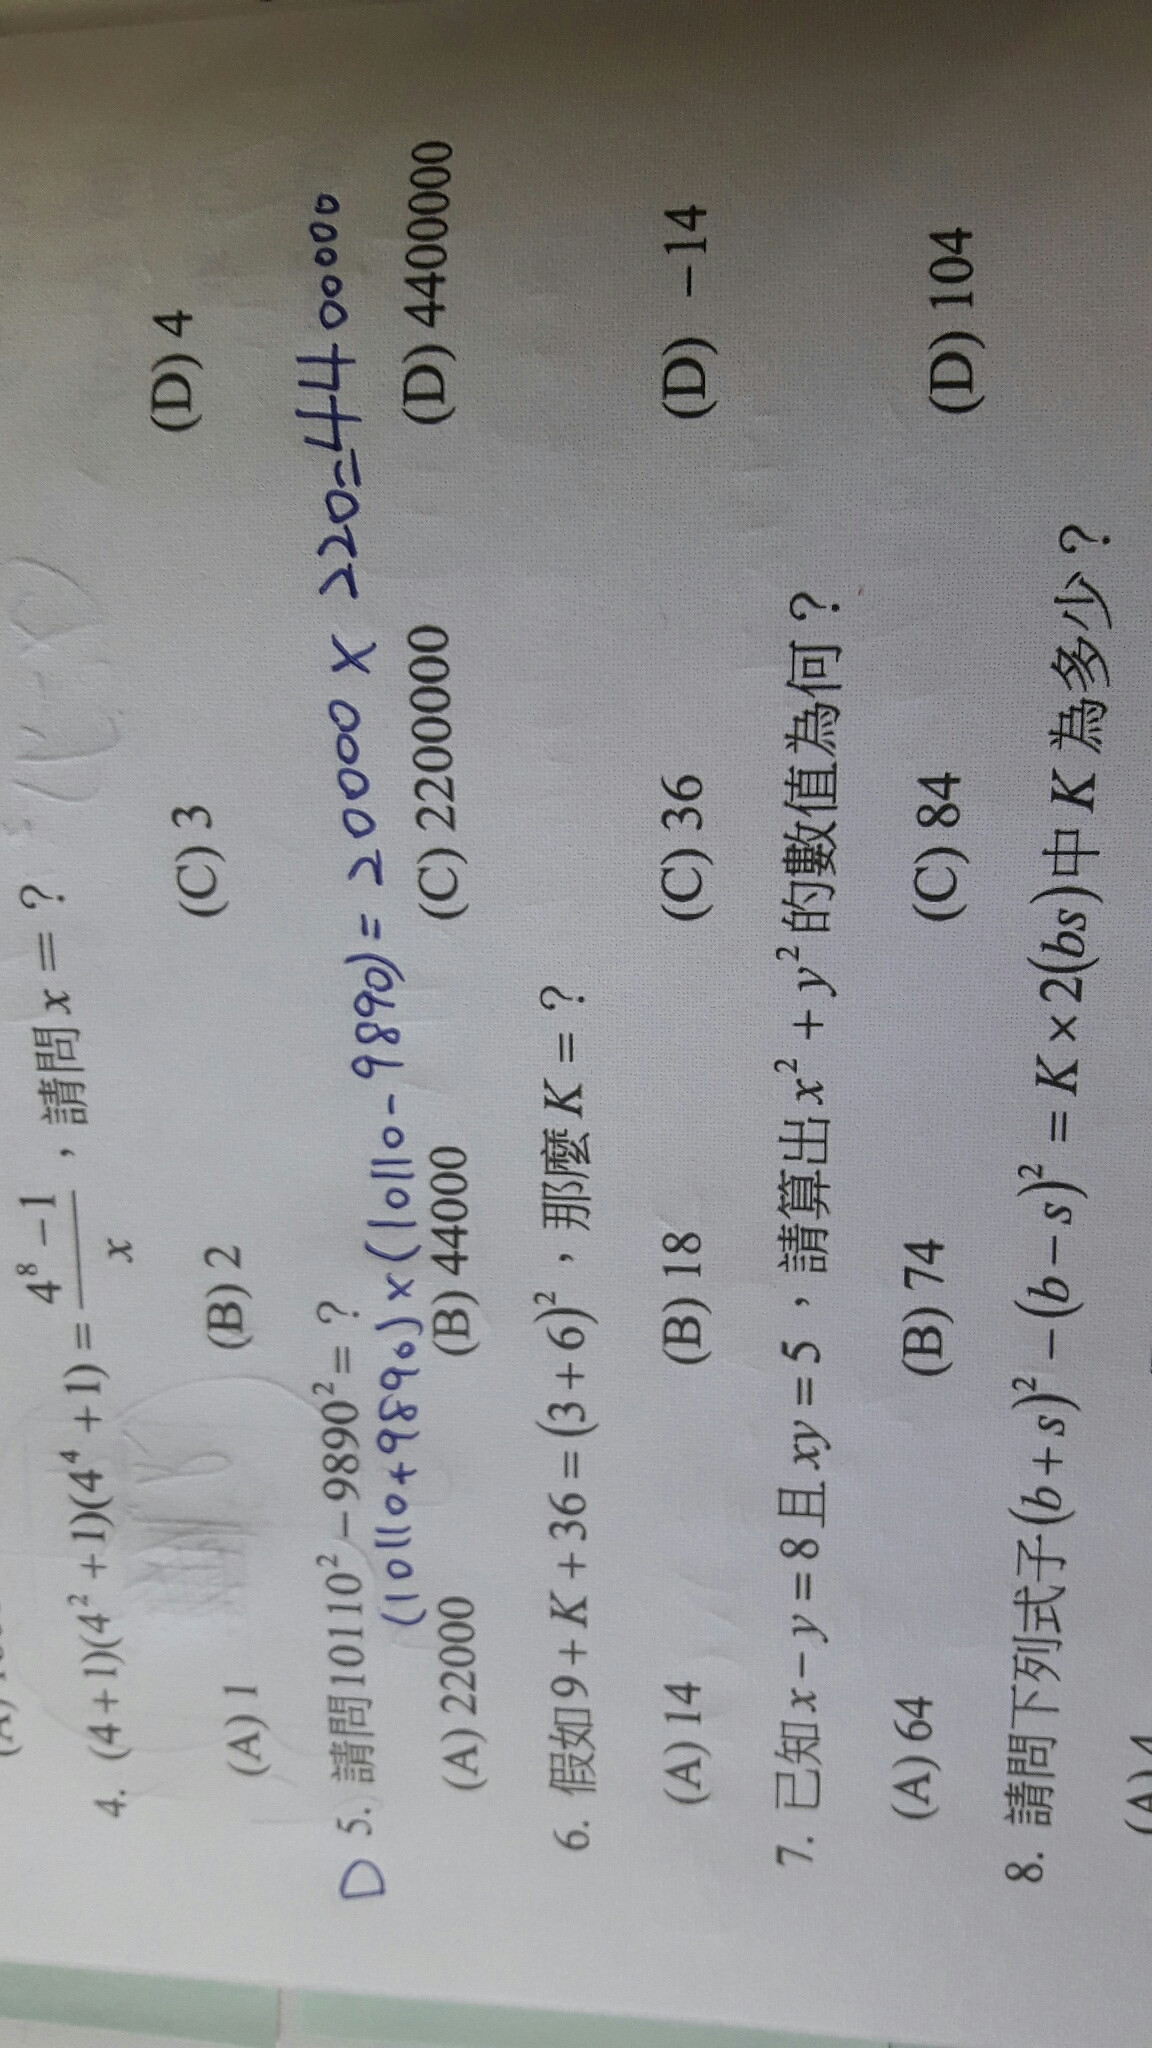 4. (4+1)(4²+1)(4⁴+1)=(4⁸−1)/x，請問x=？
(A) 1 (B) 2 (C) 3 (D) 4
D 5. 請問10110²−9890²=？
(10110+9890)×(10110-9890)=20000×220=4400000
(A) 22000 (B) 44000 (C) 2200000 (D) 4400000
6. 假如9+K+36=(3+6)²，那麼K=？
(A) 14 (B) 18 (C) 36 (D) −14
7. 已知x−y=8且xy=5，請算出x²+y²的數值為何？
(A) 64 (B) 74 (C) 84 (D) 104
8. 請問下列式子(b+s)²−(b−s)²=K×2(bs)中K為多少？